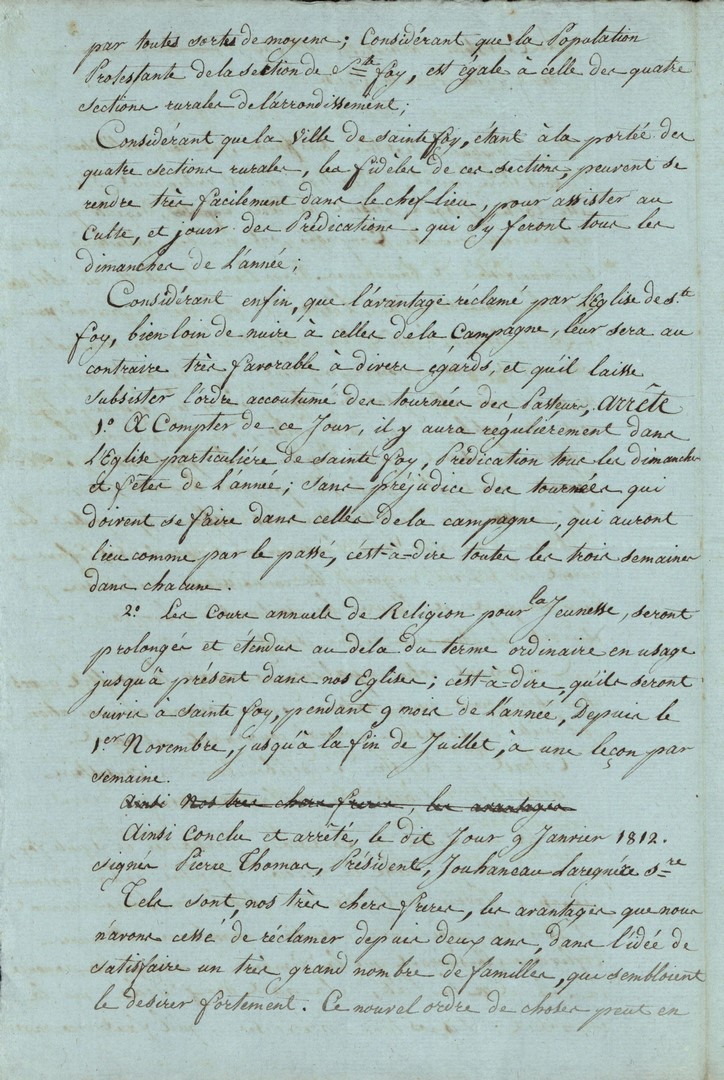 par toutes sortes de moyens ; Considérant que la Population
Protestante de la section de Ste foy, est égale à celle des quatre
sections rurales de l'arrondissement ;
Considérant que la Ville de sainte foy, étant à la portée des
quatre sections rurales, les fidèles de ces sections, peuvent se
rendre très facilement dans le chef-lieu, pour assister au
Culte, et jouir des Prédications qui s'y feront tous les
dimanches de L'année ;
Considérant enfin, que l'avantage réclamé par L'Eglise de Ste
foy, bien loin de nuire à celles de la Campagne, leur sera au
contraire très favorable à divers égards, et qu'il laisse
subsister l'ordre accoutumé des tournées des Pasteurs, arrête
1.° A Compter de ce Jour, il y aura régulièrement dans
L'Eglise particulière de sainte foy, Prédication tous les dimanches
et fêtes de L'année ; sans préjudice des tournées qui
doivent se faire dans celles de la campagne, qui auront
lieu comme par le passé, c'est-à-dire toutes les trois semaines
dans chacune.
2.° Les Cours annuels de Religion pour la Jeunesse, seront
prolongés et étendus au dela du terme ordinaire en usage
jusqu'à présent dans nos Eglises ; c'est-à-dire, qu'ils seront
suivis à sainte foy, pendant 9 mois de L'année, Depuis le
1.er Novembre, jusqu'à la fin de Juillet, à une leçon par
semaine.
Ainsi Nos tres chers freres, les avantages
Ainsi conclu et arrêté, le dit Jour 9 Janvier 1812.
signés Pierre Thomas, Président, Jouhaneau Laregnère sre
Tels sont, nos très chers freres, les avantages que nous
n'avons cessé de réclamer depuis deux ans, dans l'idée de
satisfaire un très grand nombre de familles, qui sembloient
le desirer fortement. Ce nouvel ordre de choses peut en